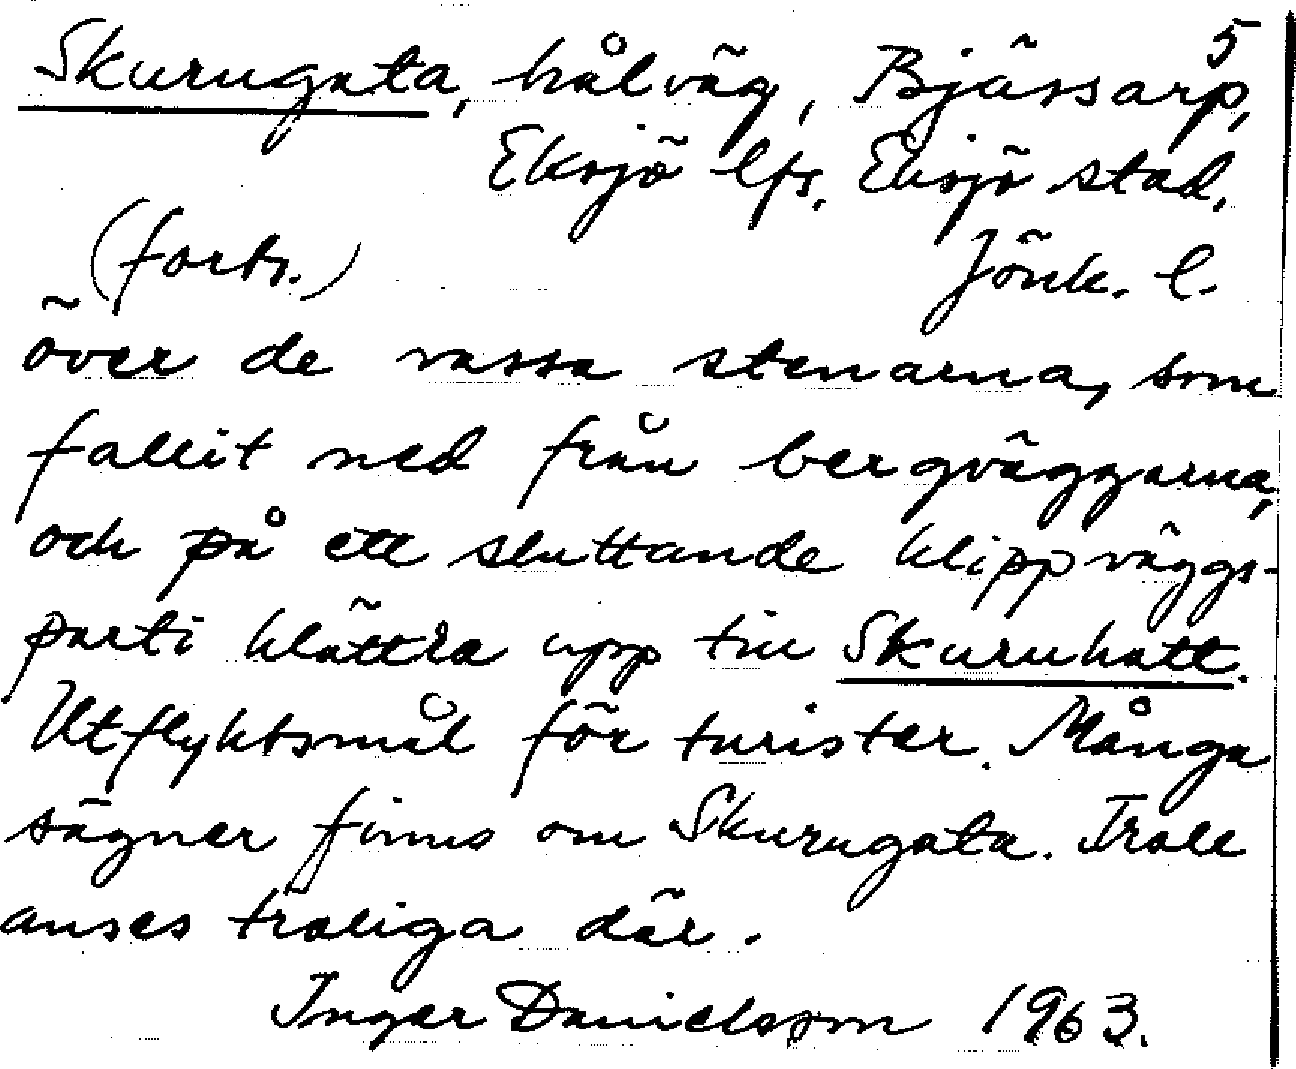 5
Skurugata, hålväg, Bjässarp,
Eksjö lfs. Eksjö stad,
(forts.) Jönk. l.
över de vassa stenarna, som
fallit ned från bergväggarna,
och på ett sluttande klippväggs-
parti klättra upp till Skuruhatt.
Utflyktsmål för turister. Många
sägner finns om Skurugata. Troll
anses troliga där.
Inger Danielsson 1963.